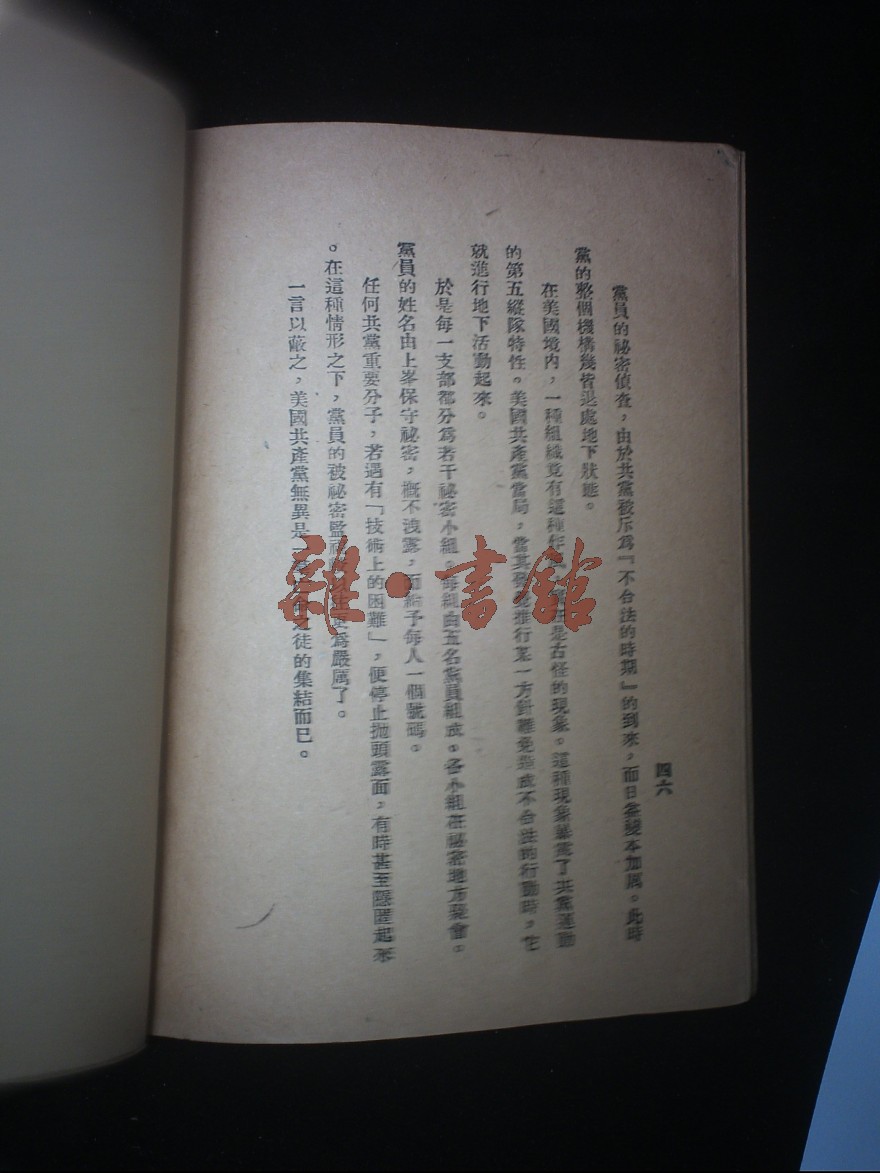 四六
黨員的祕密偵查，由於共黨被斥爲『不合法的時期』的到來，而日益變本加厲。此時
黨的整個機構幾皆退處地下狀態。
在美國境內，一種組織竟有這種是古怪的現象。這種現象暴露了共黨運動
的第五縱隊特性。美國共產黨當局，當其推行某一方針難免造成不合法的行動時，它
就進行地下活動起來。
於是每一支部都分爲若干祕密小組。每組由五名黨員組成。各小組在祕密地方聚會。
黨員的姓名由上峯保守祕密，概不洩露，而給予每人一個號碼。
任何共黨重要分子，若遇有「技術上的困難」，便停止拋頭露面，有時甚至隱匿起來
。在這種情形之下，黨員的被祕密監視更爲嚴厲了。
一言以蔽之，美國共產黨無異是之徒的集結而已。
雜·書館